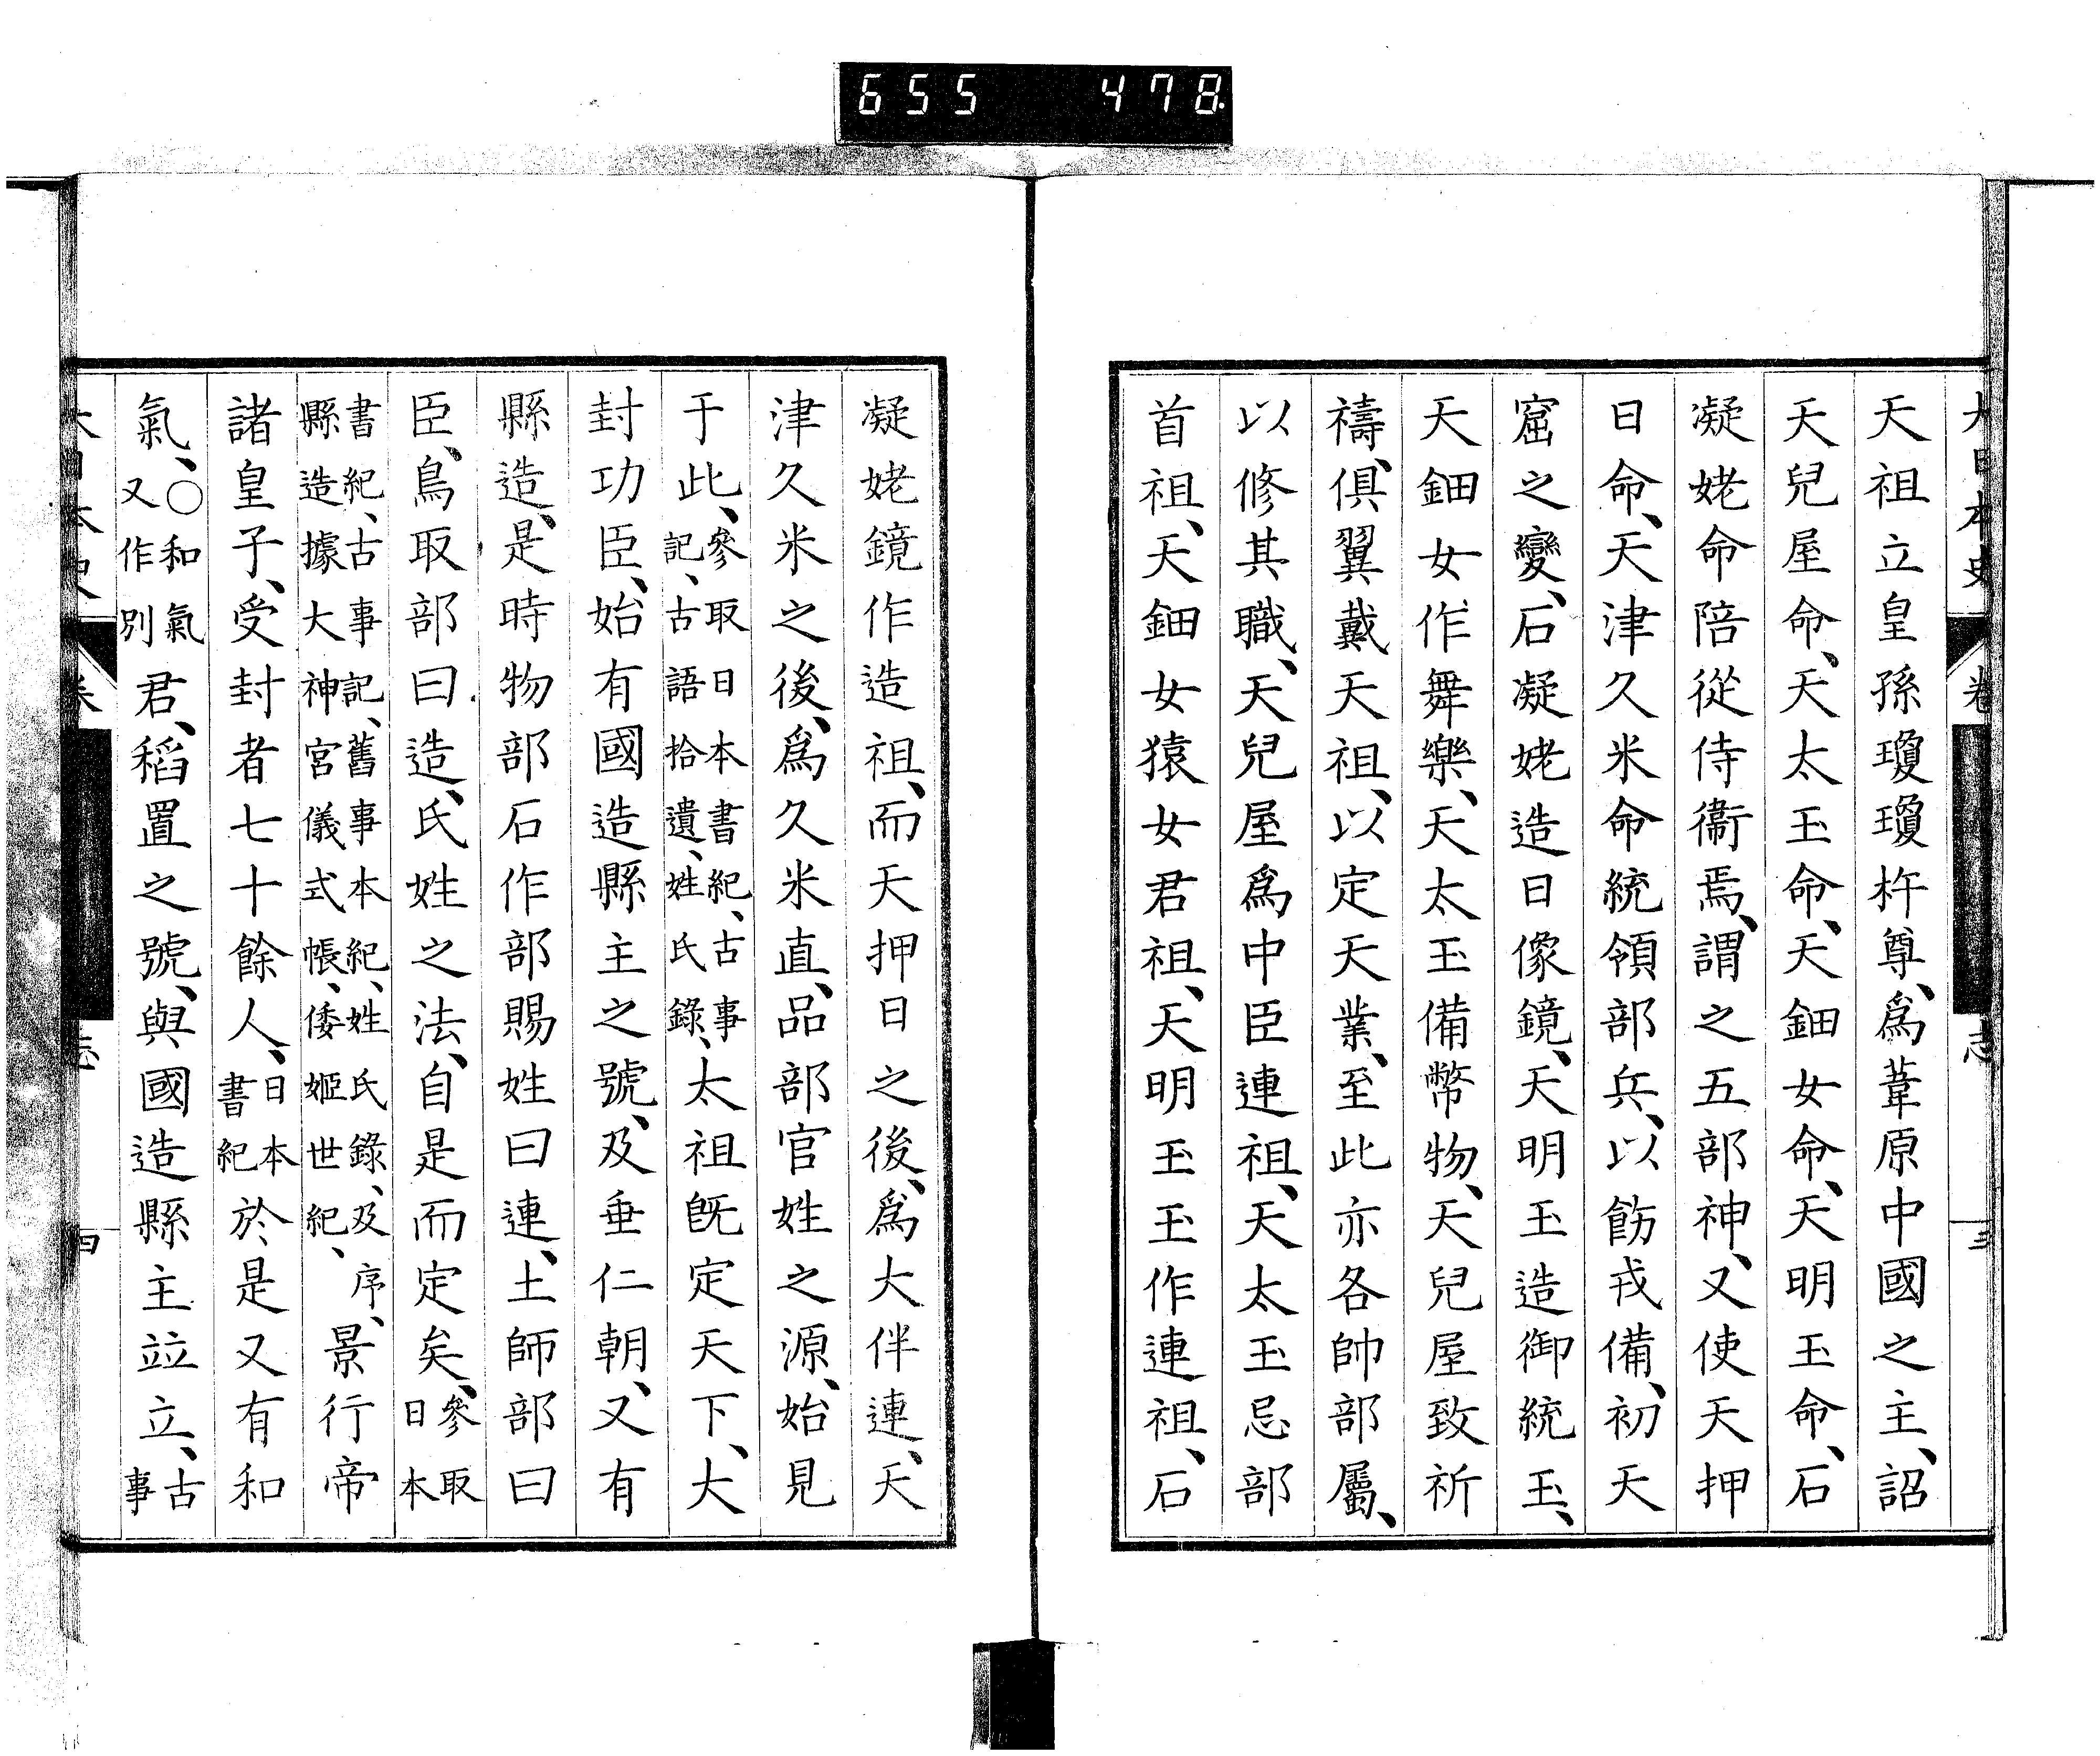 655 478
大日本史 卷 志 三
天祖立皇孫瓊瓊杵尊、爲葦原中國之主、詔
天兒屋命、天太玉命、天鈿女命、天明玉命、石
凝姥命陪從侍衞焉、謂之五部神、又使天押
日命、天津久米命統領部兵、以飭戎備、初天
窟之變、石凝姥造日像鏡、天明玉造御統玉、
天鈿女作舞樂、天太玉備幣物、天兒屋致祈
禱、俱翼戴天祖、以定天業、至此亦各帥部屬、
以修其職、天兒屋爲中臣連祖、天太玉忌部
首祖、天鈿女猿女君祖、天明玉玉作連祖、石
凝姥鏡作造祖、而天押日之後、爲大伴連、天
津久米之後、爲久米直、品部官姓之源、始見
于此、參取日本書紀、古事記、古語拾遺、姓氏錄、太祖旣定天下、大
封功臣、始有國造縣主之號、及垂仁朝、又有
縣造、是時物部石作部賜姓曰連、土師部曰
臣、鳥取部曰造、氏姓之法、自是而定矣、參取日本
書紀、古事記、舊事本紀、姓氏錄、及序、縣造據大神宮儀式帳、倭姬世紀、景行帝
諸皇子、受封者七十餘人、日本書紀於是又有和
氣、○和氣又作別君、稻置之號、與國造縣主竝立、古事
大日本史 卷 志 四